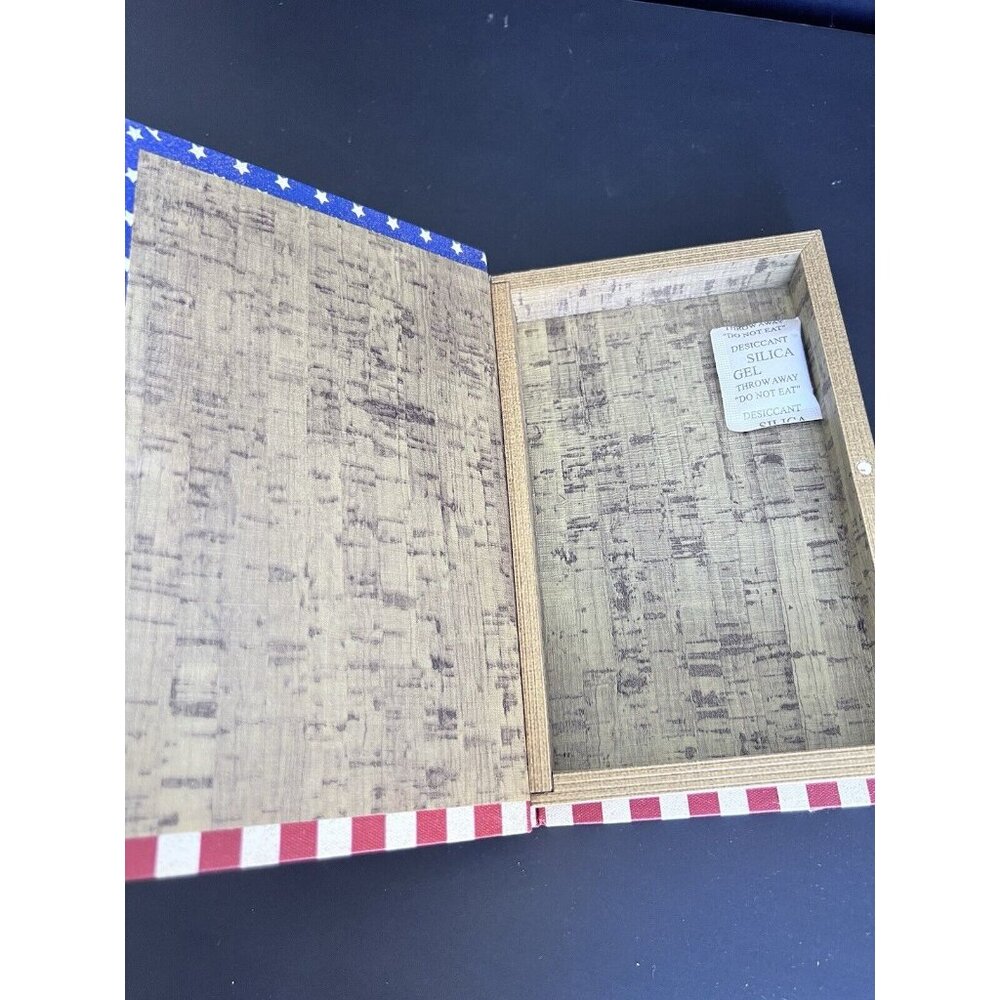 THROW AWAY
"DO NOT EAT"
DESICCANT
SILICA
GEL
THROW AWAY
"DO NOT EAT"
DESICCANT
SILICA